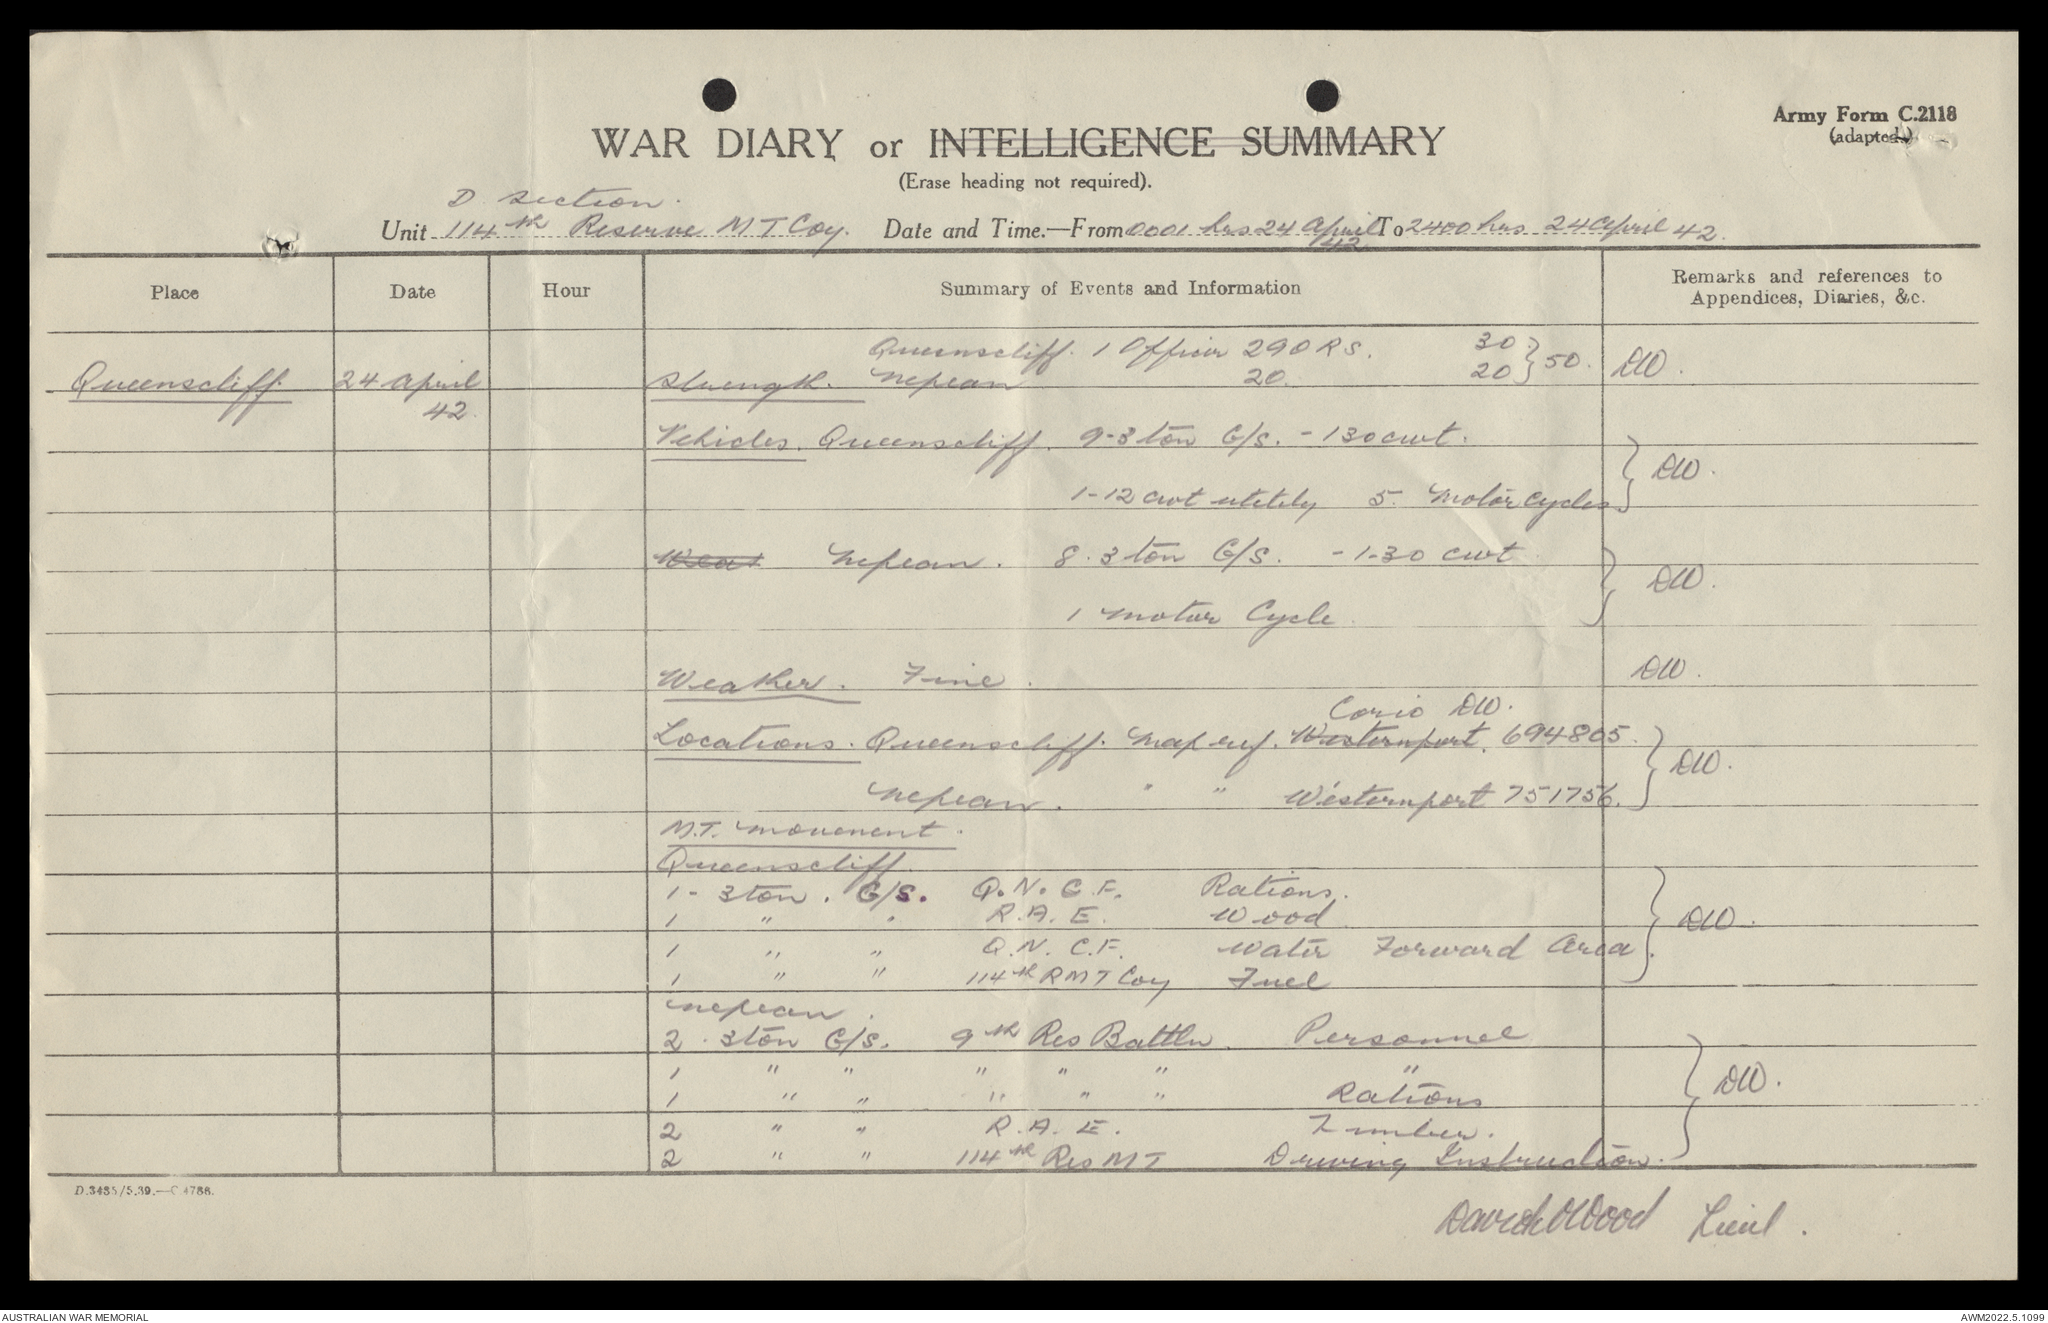 Army Form C.2118
(adapted)
WAR DIARY or INTELLIGENCE SUMMARY
(Erase heading not required).
D Section.
Unit 114th Reserve M T Coy. Date and Time.—From 0001 hrs 24 April 42 To 2400 hrs 24 April 42.
Place Date Hour Summary of Events and Information Remarks and references to
Appendices, Diaries, &c.
Queenscliff. 1 Officer 29 O R S. 30
Queenscliff 24 April Strength. Nepean 20. 20 } 50. DW.
42.
Vehicles. Queenscliff. 9-3 ton G/S. - 1 30 cwt.
1-12 cwt utility 5. Motor Cycles. } DW.
Weat Nepean. 8. 3 ton G/S. - 1-30 cwt
1 Motor Cycle. } DW.
Weather. Fine. DW.
Corio DW.
Locations. Queenscliff. Map ref. Westernport. 694805.
Nepean. " " Westernport 751756. } DW.
M.T. Movement.
Queenscliff.
1- 3 ton. G/S. Q.N.C.F. Rations.
1 " " R.A.E. Wood
1 " " Q.N.C.F. Water Forward Area.
1 " " 114th R M T Coy Fuel } DW.
Nepean.
2. 3 ton G/S. 9th Res Battln. Personnel
1 " " " " " "
1 " " " " " Rations
2 " " R.A.E. Timber.
2 " " 114th Res MT Driving Instruction. } DW.
D.3435/5.39.—C.4788.
David W Wood Lieut.
AUSTRALIAN WAR MEMORIAL
AWM2022.5.1099